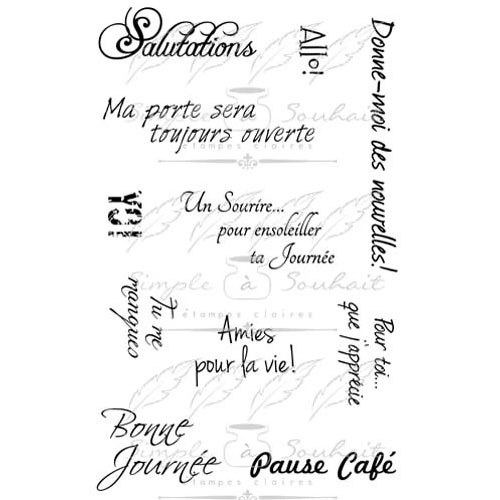 Salutations
Allo!
Donne-moi des nouvelles!
Ma porte sera
toujours ouverte
YO!
Un Sourire...
pour ensoleiller
ta Journée
Tu me
manques
Amies
pour la vie!
Pour toi...
que j'apprécie
Bonne
Journée
Pause Café
Simple à Souhait
étampes claires
Simple à Souhait
étampes claires
Simple à Souhait